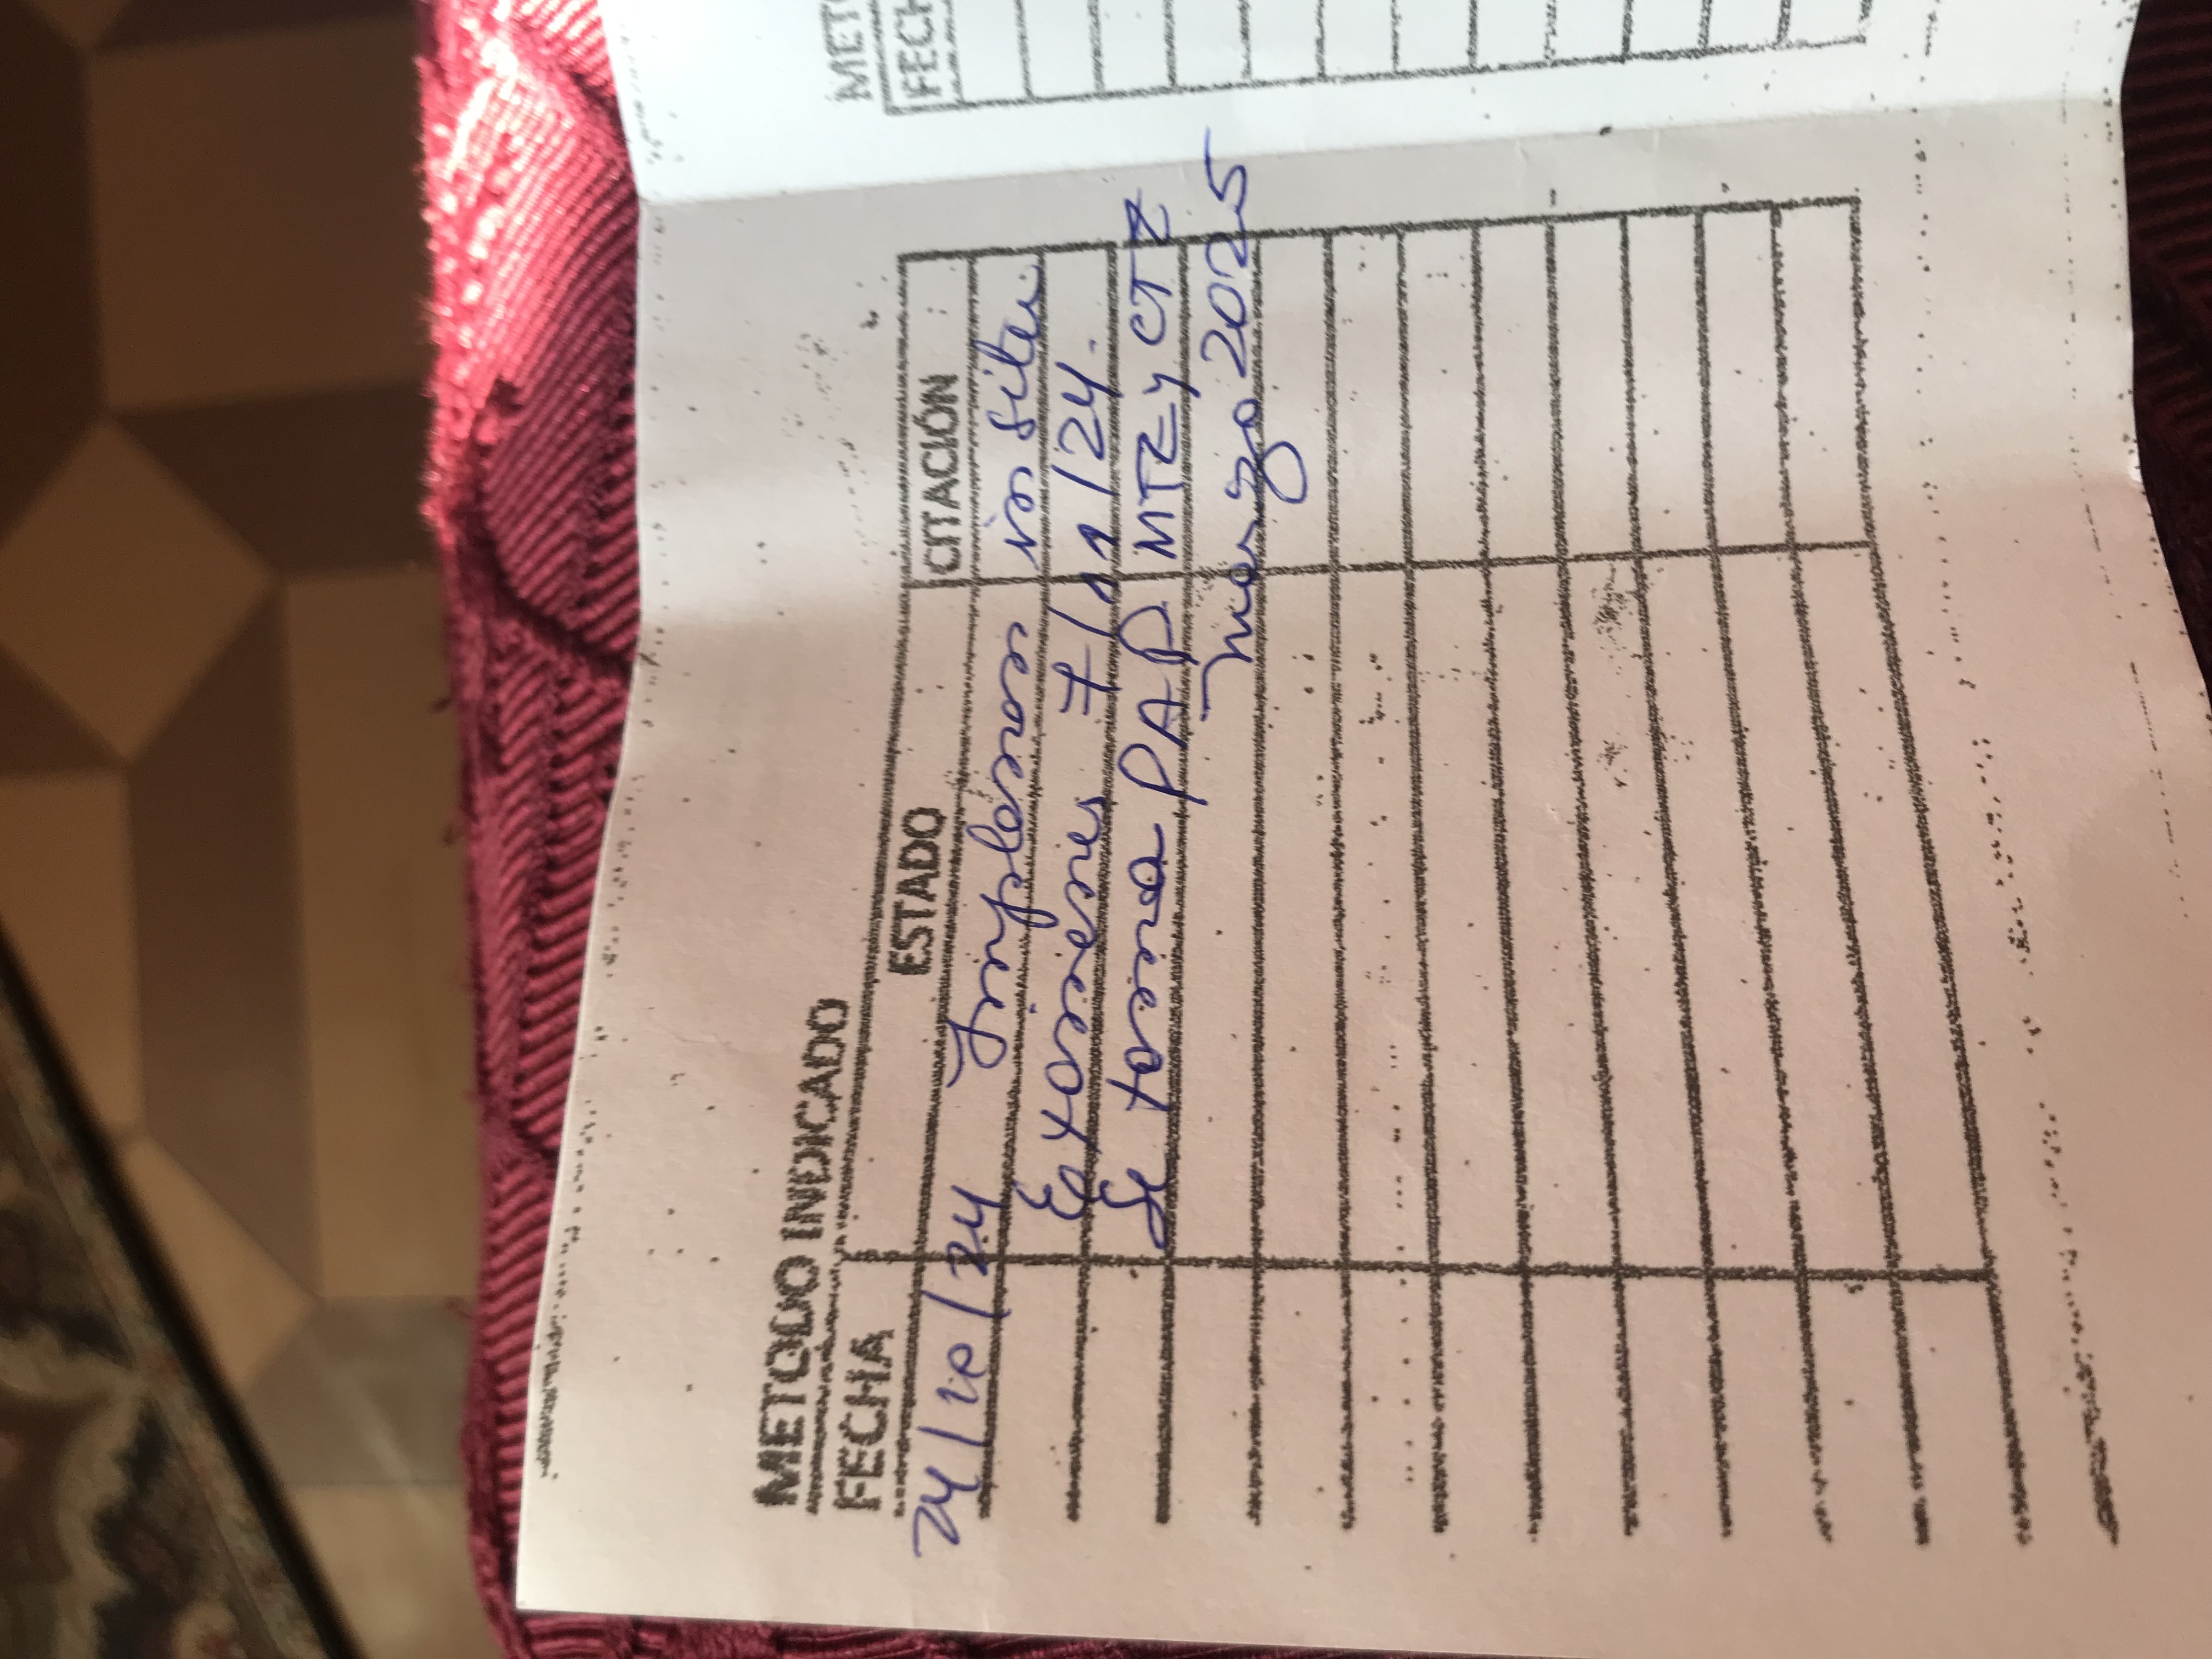 METODO INDICADO
FECHA ESTADO CITACIÓN
24/10/24 Implanon in situ
Exámenes 7/11/24.
Se toma PAP MTZ y CTZ
Marzo 2025
METO
FECH